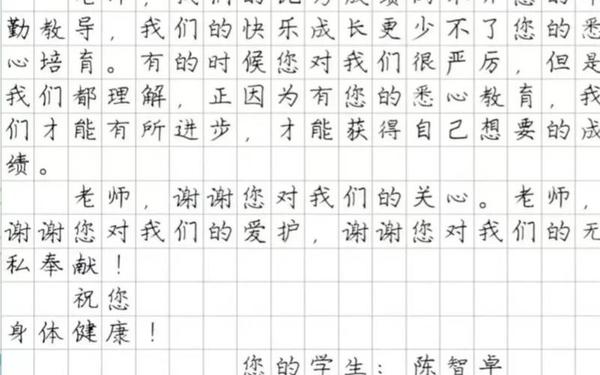 勤教导，我们的快乐成长更少不了您的悉
心培育。有的时候您对我们很严厉，但是
我们都理解，正因为有您的悉心教育，我
们才能有所进步，才能获得自己想要的成
绩。
老师，谢谢您对我们的关心。老师，
谢谢您对我们的爱护，谢谢您对我们的无
私奉献！
祝您
身体健康！
您的学生：陈智卓